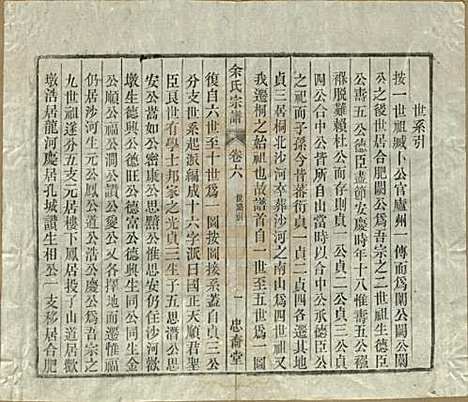 世系引
按一世祖緘卜公官廬州一傳而爲闡公闢公闗
公之後世居合肥闢公爲吾宗之二世祖生德臣
公壽五公德臣盡節安慶時年十八惟壽五公襁
褓脫難賴杜公而存則貞一公貞二公貞三公貞
四公公中公皆所自出當時中公之子承德臣公
之祀而子孫今甚蕃衍貞一貞二貞四各遷其地
貞三居桐北沙河卒葬沙河之南山爲四世祖其
我遷桐之始祖也故譜首自一世至五世爲一圖
余氏宗譜
卷六
世系引
一
忠斎堂
復自六世至十世爲一圖按圖接系蓋自貞三公
六世系起派編成十六字派曰國正天順君聖
臣良世有學士邦家之光貞三生子五思潛公思
安公思如公思密公思康公思安仍在沙河歡
公德興公德旺公德富公德興生同一公同生金
公順公福公澗公讚公夔公又各擇地而遷惟福
仍居沙河生六公元公鳳公道公浩公慶公爲吾宗之
九世祖遂分五支元居樓下鳳居投子山道居大
墩浩居龍河慶居孔城讚生相公一支移居合肥